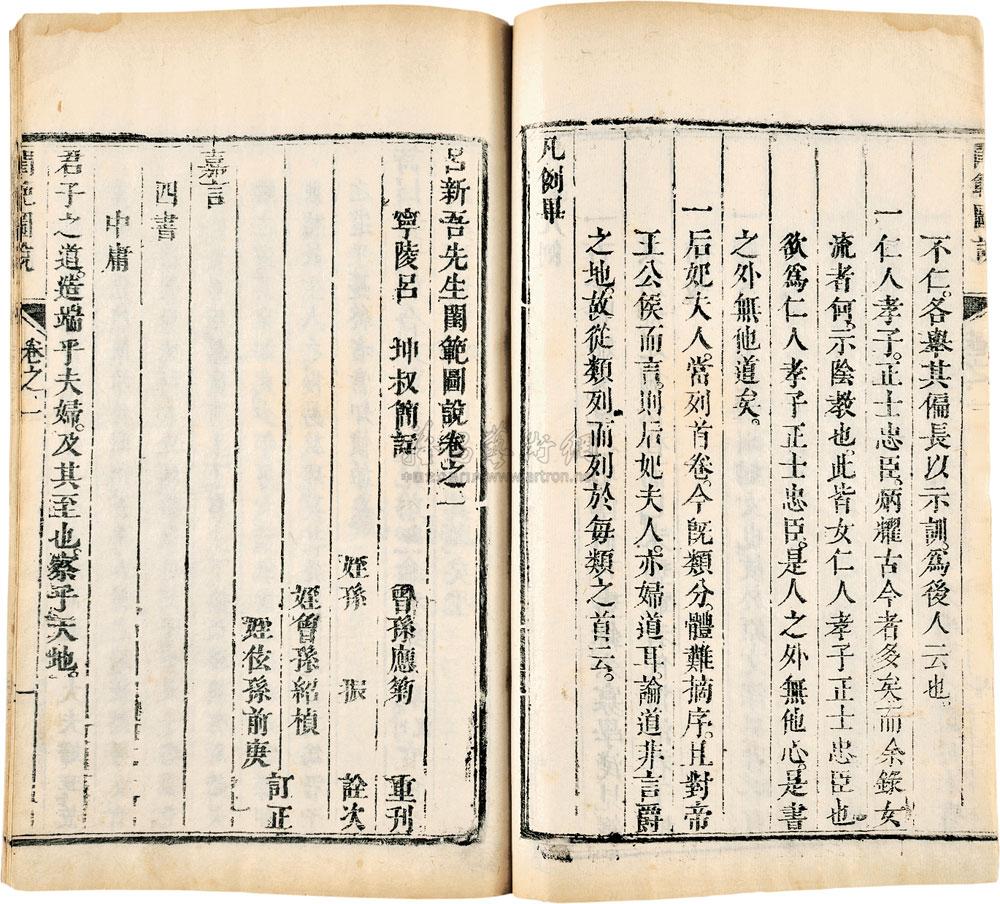 閨範圖說
不仁。各舉其偏長以示訓。為後人云也。
一仁人孝子。正士忠臣。炳耀古今者多矣。而余錄女
流者何。示陰教也。此皆女仁人孝子正士忠臣也。
欲爲仁人孝子正士忠臣。是人之外無他心。是書
之外無他道矣。
一后妃夫人。當列首卷。今旣類分。體難摘序。且對帝
王公侯而言。則后妃夫人。亦婦道耳。論道非言爵
之地。故從類列。而列於每類之首云。
凡例畢
呂新吾先生閨範圖說卷之一
寧陵呂 坤叔簡
曾孫應菊 重刊
姪孫 振 詮次
姪曾孫紹楨
姪伭孫前庚 訂正
嘉言
四書
中庸
君子之道。造端乎夫婦。及其至也。察乎天地。
閨範圖說 卷之一 一
www.artron.net